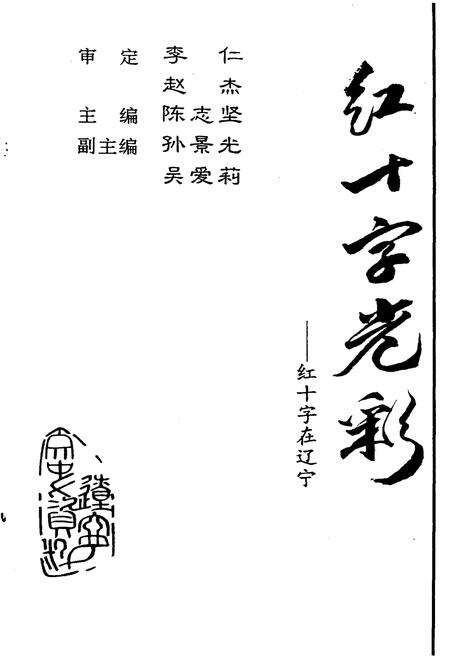 红十字光彩
——红十字在辽宁
审定 李仁
赵杰
主编 陈志坚
副主编 孙景光
吴爱莉